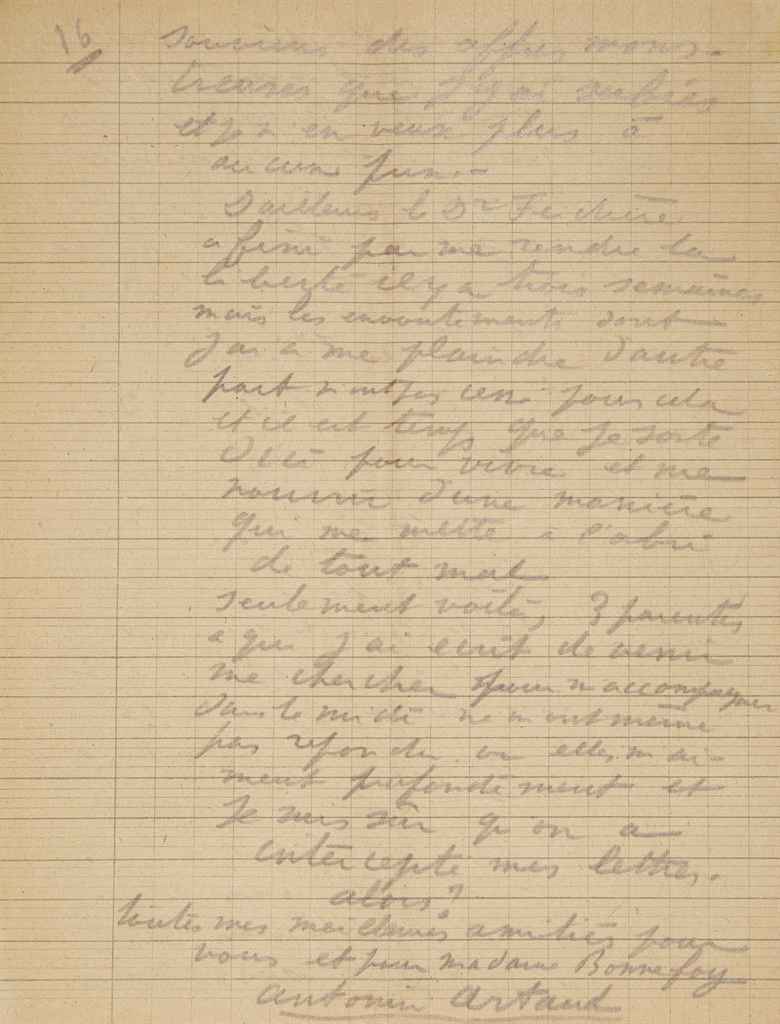 16
souviens des affres mons-
trueuses que j'y ai subies
et je n en veux plus à
aucun prix.-
D'ailleurs le Dr Ferdière
a fini par me rendre la
liberté il y a trois semaines
mais les envoutements dont
j'ai à me plaindre d'autre
part n'ont pas cessé pour cela
et il est temps que je sorte
d'ici pour vivre et me
nourrir d'une manière
qui me mette à l'abri
de tout mal
seulement voilà, 3 parentes
a qui j'ai ecrit de venir
me chercher pour m accompagner
dans le midi ne m ont même
pas repondu. or elles m ai-
ment profondement et
je suis sûr qu'on a
intercepté mes lettres.
alors?
toutes mes meilleures amitiés pour
vous et pour madame Bonnefoy
antonin artaud